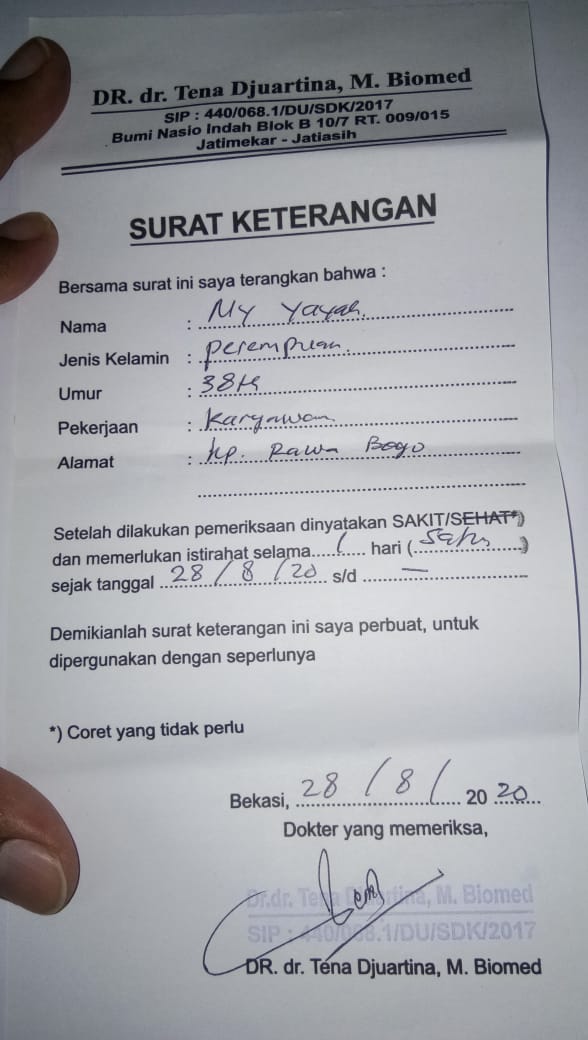 DR. dr. Tena Djuartina, M. Biomed
SIP : 440/068.1/DU/SDK/2017
Bumi Nasio Indah Blok B 10/7 RT. 009/015
Jatimekar - Jatiasih
SURAT KETERANGAN
Bersama surat ini saya terangkan bahwa :
Nama : Ny Yayah
Jenis Kelamin : perempuan
Umur : 38
Pekerjaan : Karyawan
Alamat : kp. Rawa Bogo
Setelah dilakukan pemeriksaan dinyatakan SAKIT/SEHAT*)
dan memerlukan istirahat selama 1 hari (satu)
sejak tanggal 28/8/20 s/d —
Demikianlah surat keterangan ini saya perbuat, untuk
dipergunakan dengan seperlunya
*) Coret yang tidak perlu
Bekasi, 28/8/ 20 20
Dokter yang memeriksa,
Dr.dr. Tena Djuartina, M. Biomed
SIP : 440/068.1/DU/SDK/2017
DR. dr. Tena Djuartina, M. Biomed